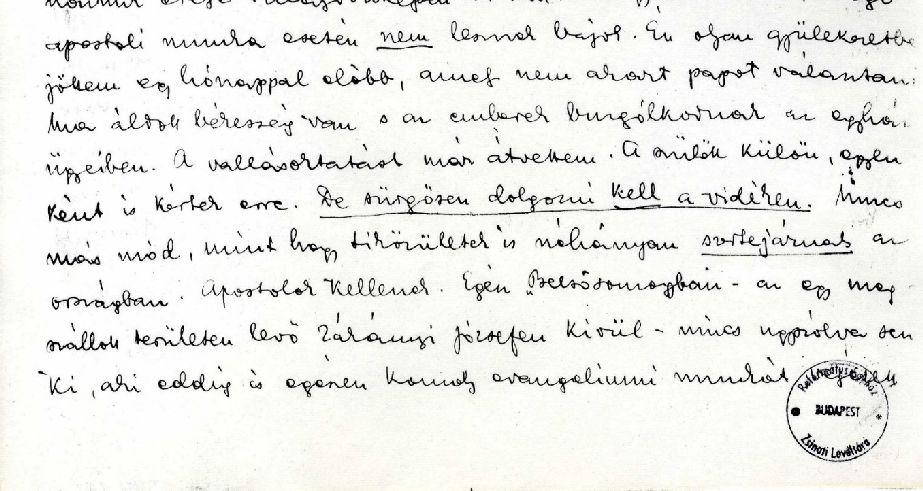 apostoli munka esetén nem lesznek bajok. Én olyan gyülekezetbe
jöttem egy hónappal előbb, amely nem akart papot választani:
Ma áldott békesség van s az emberek buzgólkodnak az egyház
ügyeiben. A vallásoktatást már átvettem. A szülők külön, egyen
ként is kértek erre. De sürgősen dolgozni kell a vidéken. Nincs
más mód, mint hogy lelkészületek is néhányan szertejárnak az
országban. Apostolok kellenek. Egész Belsősomogyban - az egy meg
szállott területen levő Zákányi Józsefen kívül - nincs úgyszólva sen
ki, aki eddig is egészen komoly evangéliumi munkát
Református Egyház
BUDAPEST
Zsinati Levéltára